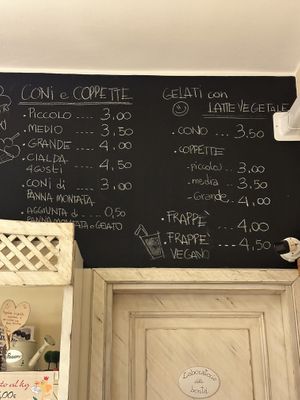 CONI e COPPETTE
. PICCOLO .... 3,00
. MEDIO ..... 3,50
. GRANDE ... 4,00
. CIALDA
4 GUSTI .... 4,50
. CONI di .... 3,00
PANNA MONTATA
. AGGIUNTA di .... 0,50
PANNA MONTATA o GELATO
GELATI con
LATTE VEGETALE
. CONO .... 3,50
. COPPETTE
- piccola .... 3,00
- media ... 3,50
- Grande ... 4,00
. FRAPPÈ ... 4,00
. FRAPPÈ ... 4,50
VEGANO
Laboratorio
della
bontà